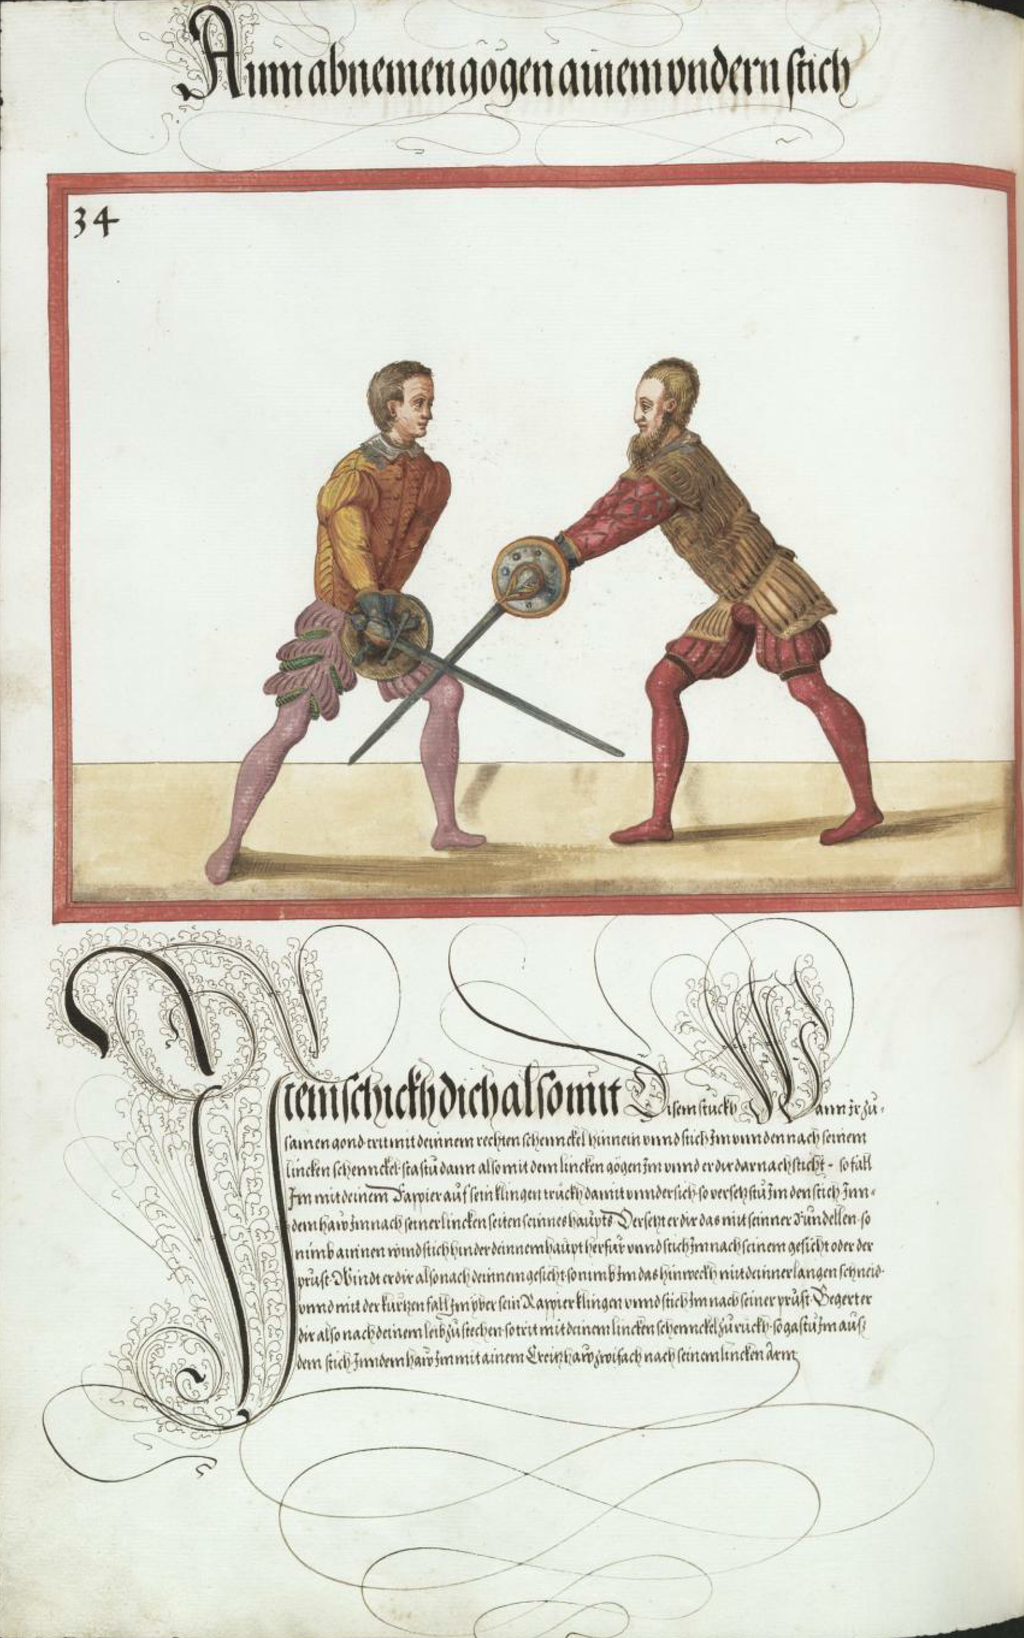 Ainn abnemen gögen ainem vndern stich
34
Item schickh dich also mit Disem stuckh Wann Ir zu-
samen gond trit mit deinnem rechten schennckel hinnein vnnd stich Im vnnden nach seinem
lincken schennckel stastu dann also mit dem lincken gögen Im vnnd er dir darnach sticht - so fall
Im mit deinem Rappier auf sein klingen truckh damit vnndersich so versetztu Im den stich Inn-
dem haw Im nach seiner lincken seiten seinnes haupts Versetzt er dir das mit seinner Rundellen so
nimb ainnen windstich hinder deinnem haupt herfür vnnd stich Im nach seinem gesicht oder der
prust Windt er dir also nach deinnem gesicht so nimb Im das hinweckh mit deinner langen schneid
vnnd mit der kurtzen fall Im yber sein Rappier klingen vnnd stich Im nach seiner prust Begert er
dir also nach deinem leib zu stechen so trit mit deinem lincken schennckel zuruckh so gastu Im aus
dem stich Inn dem haw Im mit ainem Creitzhaw zwifach nach seinem lincken Arm